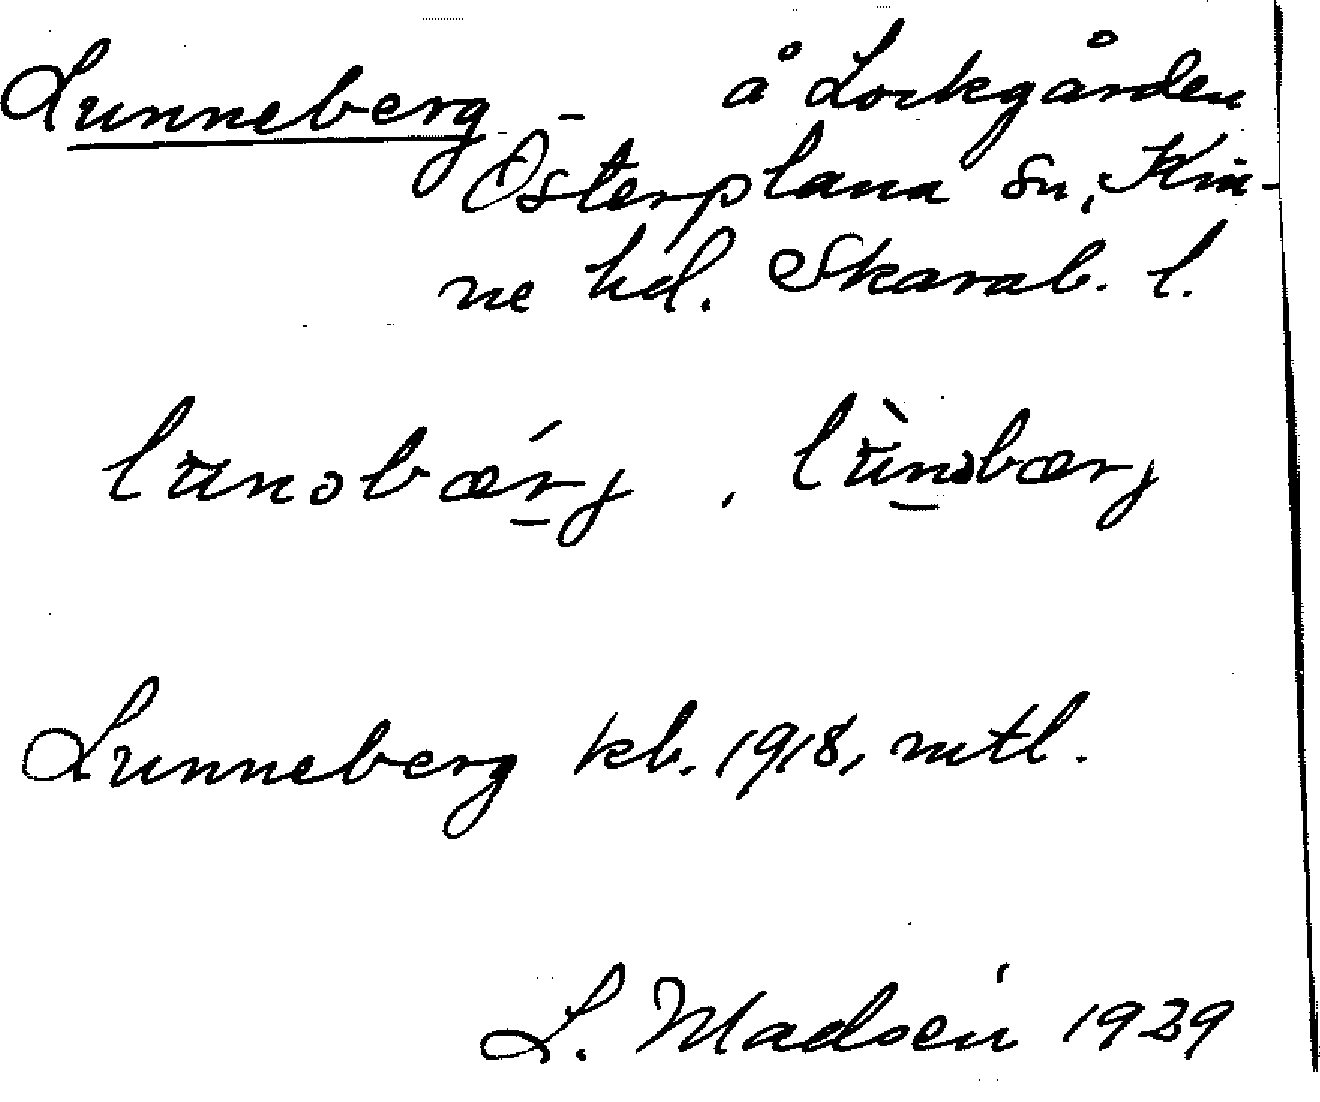 Lunneberg - å Lockgården
Österplana sn, Kin-
ne hd. Skarab. l.
lunəbærj, lunəbærj
Lunneberg kb. 1918, mtl.
L. Madsén 1929